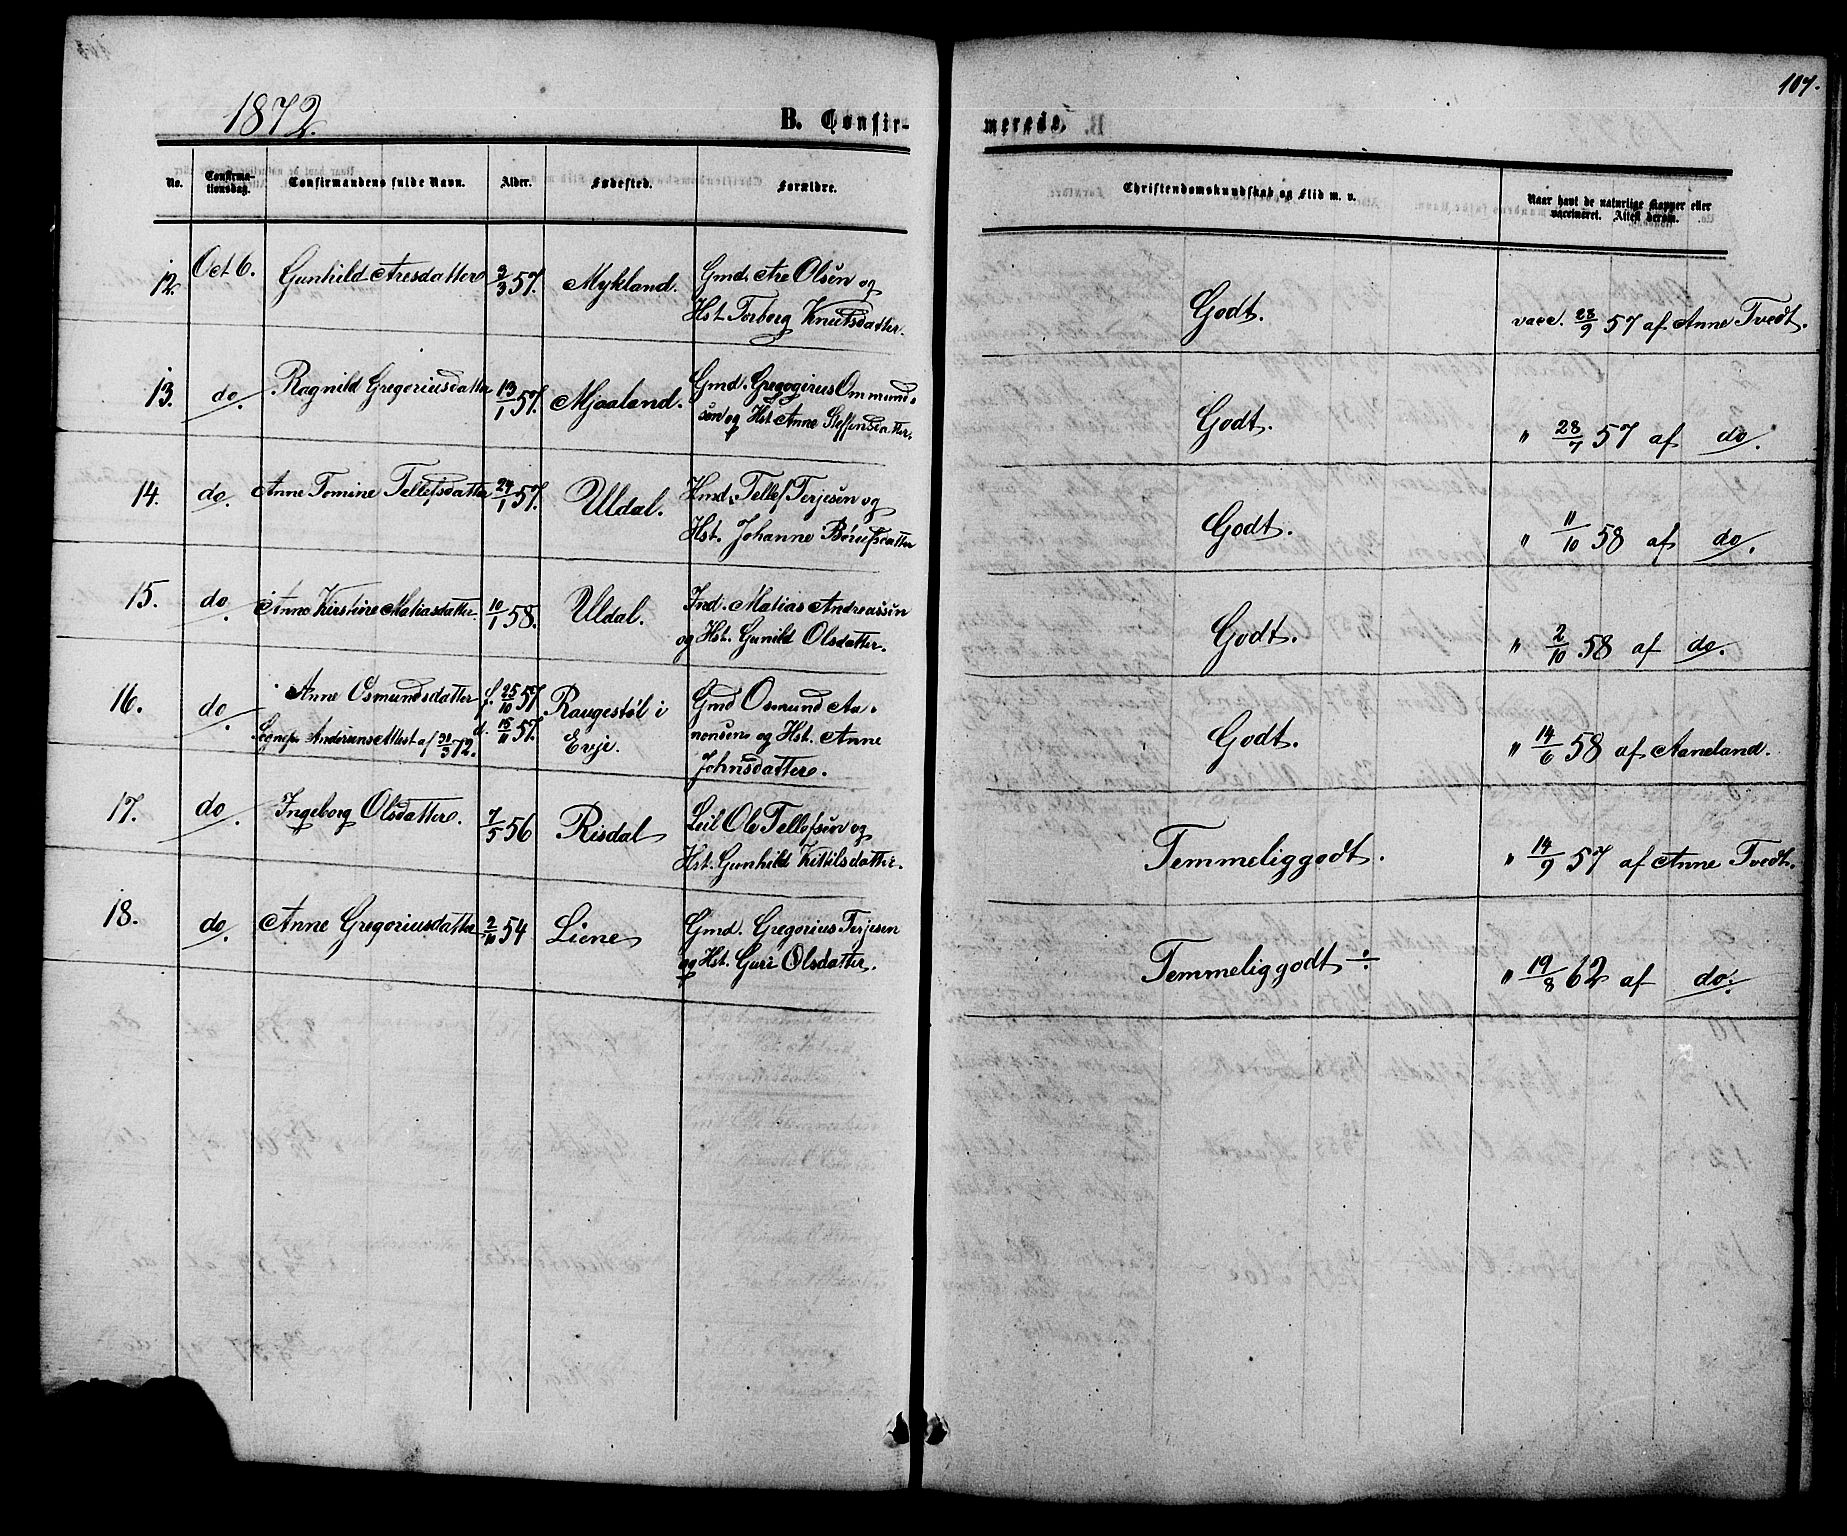 107.
1872.
B. Confir-
merede.
No.
Confirma-
tionsdag.
Confirmandens fulde Navn.
Alder.
Fødested.
Forældre.
Christendomskundskab og Flid m. v.
Naar havt de naturlige Kopper eller
vaccineret. Attest derom.
12. Oct 6. Gunhild Aresdatter 3/3 57. Mykland. Gmd. Are Olsen og
Hst. Torborg Knutsdatter.
Godt. vacc. 28/9 57 af Anne Tvedt.
13. do. Ragnild Gregoriusdatter 13/1 57. Mjaaland. Gmd. Gregogirius Ommund-
sen og Hst. Anne Steffensdatter.
Godt. " 28/7 57 af do.
14. do. Anne Tomine Tellefsdatter 24/1 57. Uldal. Hmd. Tellef Terjesen og
Hst. Johanne Børufsdatter
Godt. " 11/10 58 af do.
15. do. Anne Kirstine Matiasdatter. 10/1 58. Uldal. Ind. Matias Andreassen
og Hst. Gunild Olsdatter.
Godt. " 2/10 58 af do.
16. do. Anne Osmundsdatter f. 25/10 57. Raugestøl i Gmd Osmund Aa-
Sognepr. Andersens Attest af 30/3 72. d. 15/11 57. Evje. nonsen og Hst. Anne
Johnsdatter.
Godt. " 14/6 58 af Aaneland.
17. do. Ingeborg Olsdatter. 7/5 56 Risdal Leil Ole Tellefsen og
Hst. Gunhild Kittilsdatter.
Temmelig godt. " 14/9 57 af Anne Tvedt.
18. do. Anne Gregoriusdatter 2/10 54 Liene Gmd. Gregorius Terjesen
og Hst. Guri Olsdatter.
Temmelig godt ÷ " 19/8 62 af do.